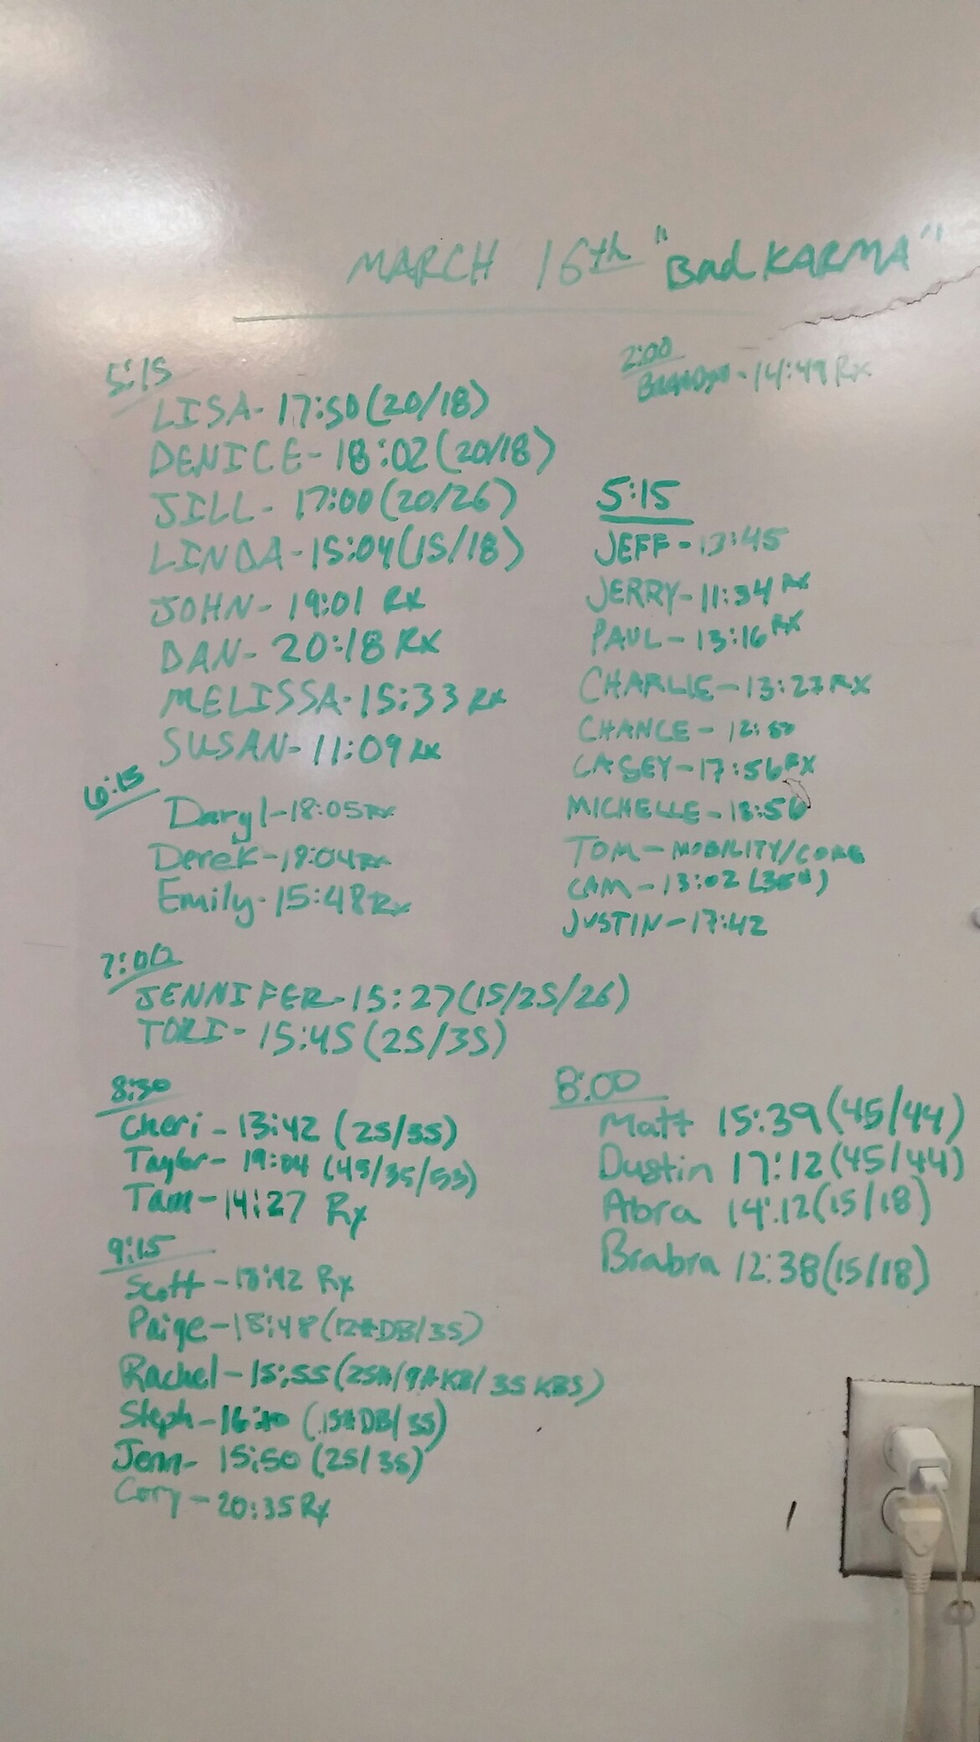 MARCH 16th "Bad KARMA"
5:15
LISA- 17:50 (20/18)
DENICE- 18:02 (20/18)
JILL- 17:00 (20/26)
LINDA- 15:04 (15/18)
JOHN- 19:01 Rx
DAN- 20:18 Rx
MELISSA- 15:33 Rx
SUSAN- 11:09 Rx
6:15
Daryl- 18:05 Rx
Derek- 18:04 Rx
Emily- 15:48 Rx
7:00
JENNIFER- 15:27 (15/25/26)
TORI- 15:45 (25/35)
8:30
Cheri - 13:42 (25/35)
Taylor- 19:04 (45/35/53)
Tam- 14:27 Rx
9:15
Scott - 18:42 Rx
Paige- 18:48 (12# DB/35)
Rachel- 15:55 (25#/9# KB/ 35 KBS)
Steph- (15# DB/35)
Jenn- 15:50 (25/35)
Cory- 20:35 Rx
2:00
- 14:49 Rx
5:15
JEFF- 13:45
JERRY- 11:34 Rx
PAUL- 13:16 Rx
CHARLIE- 13:27 RX
CHANCE- 12:50
CASEY- 17:56 RX
MICHELLE- 18:56
TOM- MOBILITY/CORE
CAM- 13:02 (35#)
JUSTIN- 17:42
8:00
Matt 15:39 (45/44)
Dustin 17:12 (45/44)
Abra 14:12 (15/18)
Brabra 12:38 (15/18)